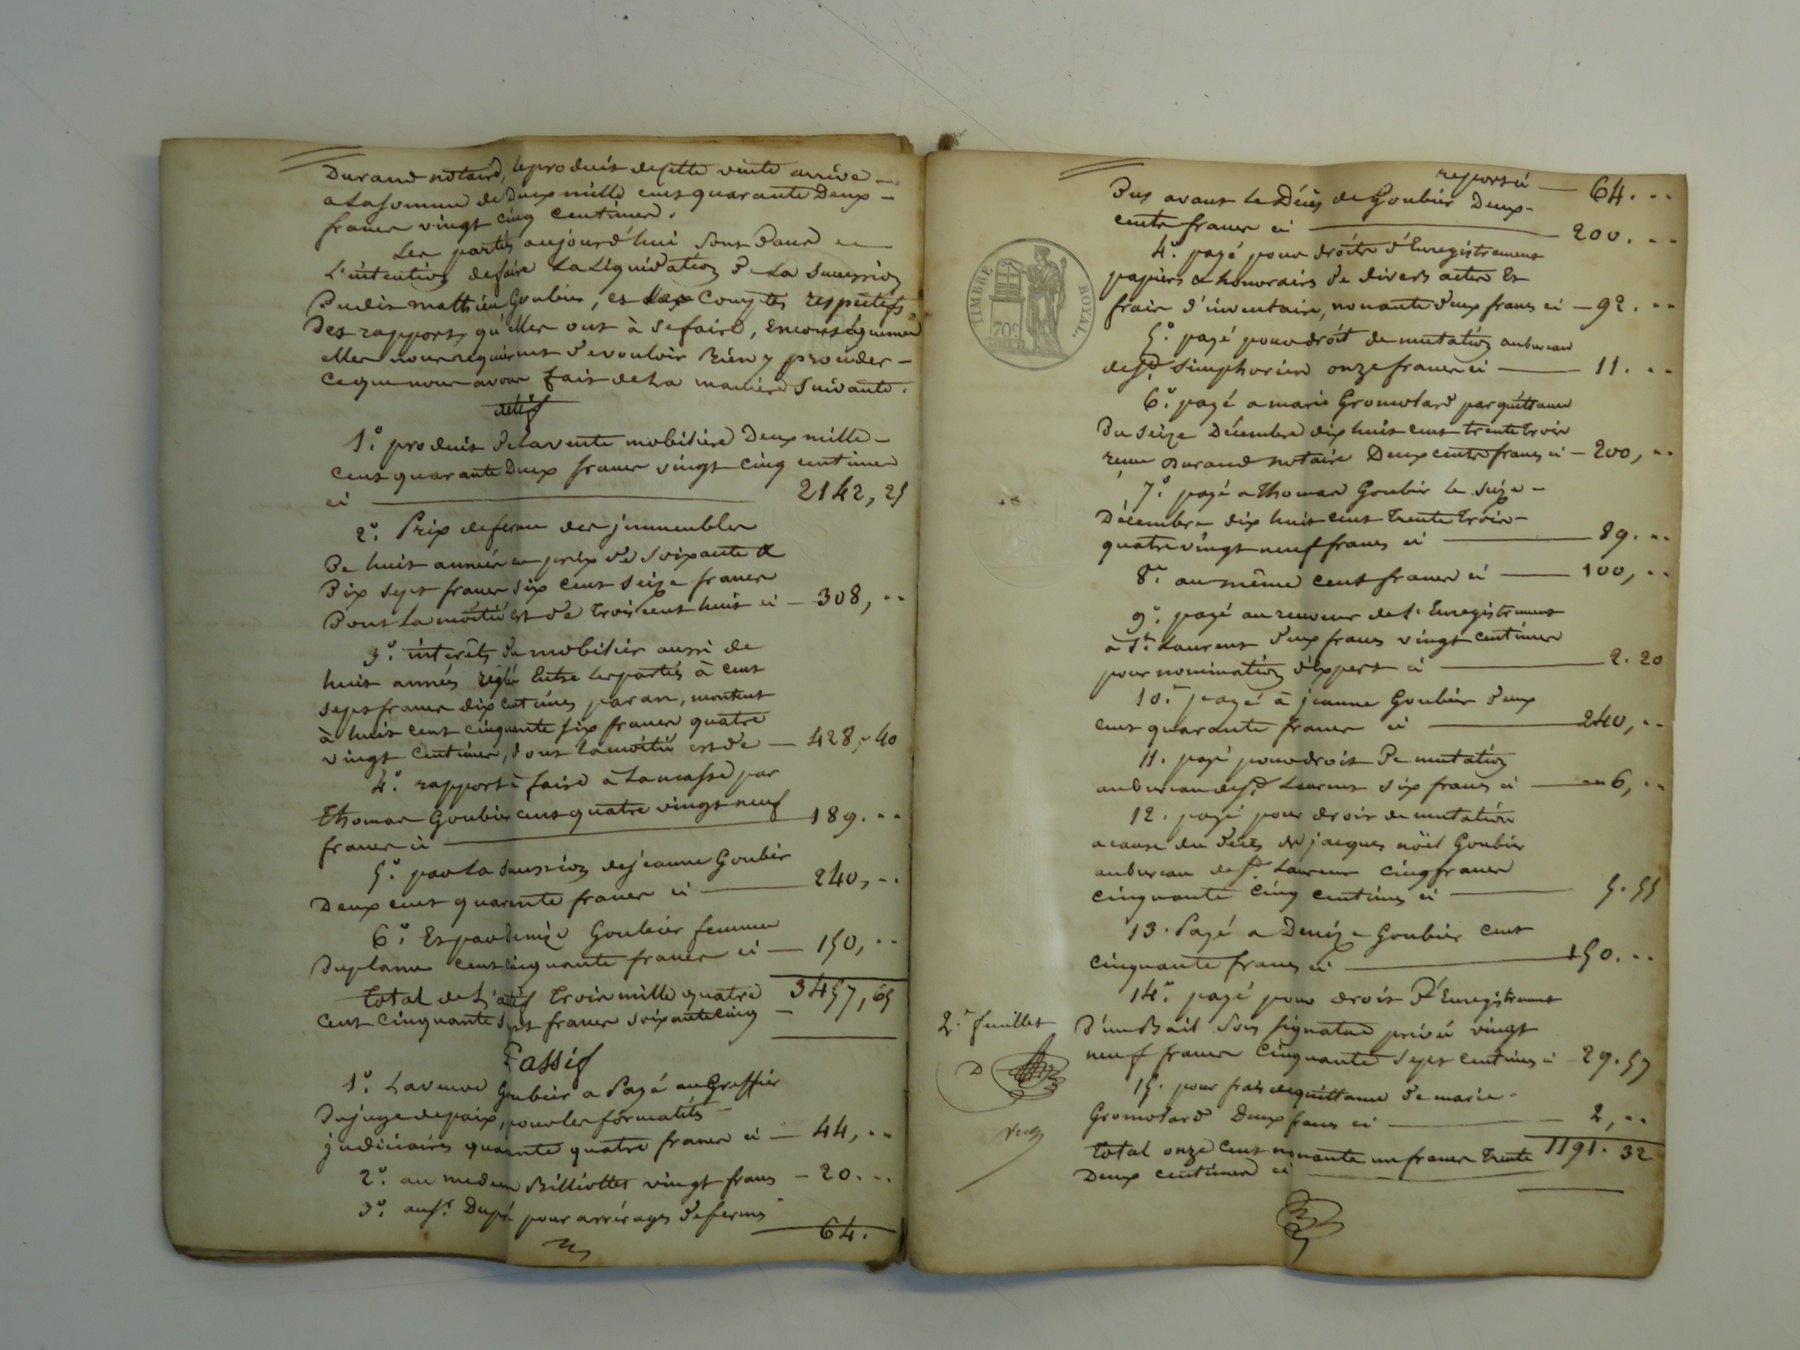 Durand notaire, le produit de cette vente arrive
a la somme de Deux mille cent quarante Deux
francs vingt cinq centimes.
Les parties aujourd'hui sont dans
L'intention de faire La Liquidation de La Succession
Dudit matthieu Goubier, et des Comptes respectifs
Des rapports qu'elles ont à se faire, En conséquence
elles nous requièrent de vouloir bien y procéder
ce que nous avons fait de La manière suivante.
actif
1.º produit de la vente mobilière Deux mille
cent quarante Deux francs vingt cinq centimes
ci 2142, 25
2.º Prix de ferme des immeubles
De huit années au prix de soixante &
Dix sept francs six cent seize francs
Dont La moitié est de trois cent huit ci 308, ..
3.º intérêts du mobilier aussi de
huit années réglé Entre les parties à cent
sept francs dix centimes par an, montent
à huit cent cinquante six francs quatre
vingt centimes, dont la moitié est de 428, 40
4.º rapport à faire à La masse par
Thomas Goubier cent quatre vingt neuf
francs ci 189. ..
5.º par La succession de jeanne Goubier
Deux cent quarante francs ci 240, ..
6.º Et par Denize Goubier femme
Duplame cent cinquante francs ci 150, ..
total de L'actif trois mille quatre 3457, 65
cent cinquante sept francs soixante cinq
Passif
1.º La veuve Goubier a Payé au Greffier
Du juge de paix, pour les formalités
judiciaires quarante quatre francs ci 44, ..
2.º au medecin Billiottet vingt francs 20. ..
3.º au s.r Dupré pour arrérages de fermes
64.
TIMBRE ROYAL
70c
reporté 64. ..
Dus avant Le Décès de Goubier Deux
cents francs ci 200. ..
4.º payé pour droits d'Enregistrement
papiers & honoraires de divers actes Et
frais d'inventaire, nonante deux francs ci 92. ..
5.º payé pour droit de mutation au bureau
de S.t Simphorien onze francs ci 11. ..
6.º payé a marie Gromolard par quittance
Du seize Décembre dix huit cent trente trois
reçue Durand notaire Deux cents francs ci 200, ..
7.º payé a Thomas Goubier le seize
Décembre dix huit cent trente trois
quatre vingt neuf francs ci 89. ..
8.º au même cent francs ci 100, ..
9.º payé au receveur de L'Enregistrement
à S.t Laurent deux francs vingt centimes
pour nomination d'Expert ci 2. 20
10.º payé à jeanne Goubier deux
cent quarante francs ci 240, ..
11. payé pour droit De mutation
au bureau de S.t Laurent six francs ci 6, ..
12. payé pour droit de mutation
a cause du décès de jacques noël Goubier
au bureau de S.t Laurent cinq francs
cinquante cinq centimes ci 5. 55
13. Payé a Denize Goubier cent
cinquante francs ci 150. ..
14.º payé pour droit d'Enregistrement
D'un Bail sous signature privée vingt
neuf francs cinquante sept centimes ci 29. 57
15. pour frais de quittance de marie
Gromolard Deux francs ci 2, ..
total onze cent nonante un francs trente 1191. 32
Deux centimes ci
2.e feuillet
D